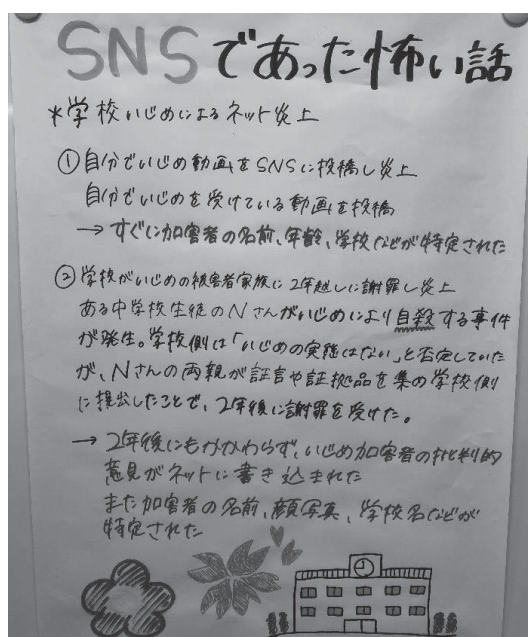 SNSであった怖い話
*学校いじめによるネット炎上
①自分でいじめ動画をSNSに投稿し炎上
自分でいじめを受けている動画を投稿
→すぐに加害者の名前、年齢、学校などが特定された
②学校がいじめの被害者家族に2年越しに謝罪し炎上
ある中学校生徒のNさんがいじめにより自殺する事件
が発生。学校側は「いじめの実態はない」と否定していた
が、Nさんの両親が証言や証拠品を集め学校側
に提出したことで、2年後に謝罪を受けた。
→2年後にもかかわらず、いじめ加害者の批判的
意見がネットに書き込まれた
また加害者の名前、顔写真、学校名などが
特定された